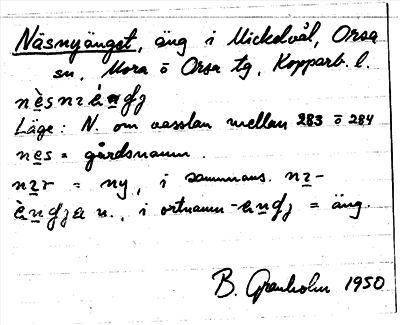 Näsnyänget, äng i Mickelvål, Orsa
sn, Mora o Orsa tg, Kopparb. l.
nèsnzèngj
Läge: N. om vasslan mellan 283 o 284
nes = gårdsnamn.
nzr = ny, i sammans. nz-
èngja n., i ortnamn -engj = äng.
B. Granholm 1950